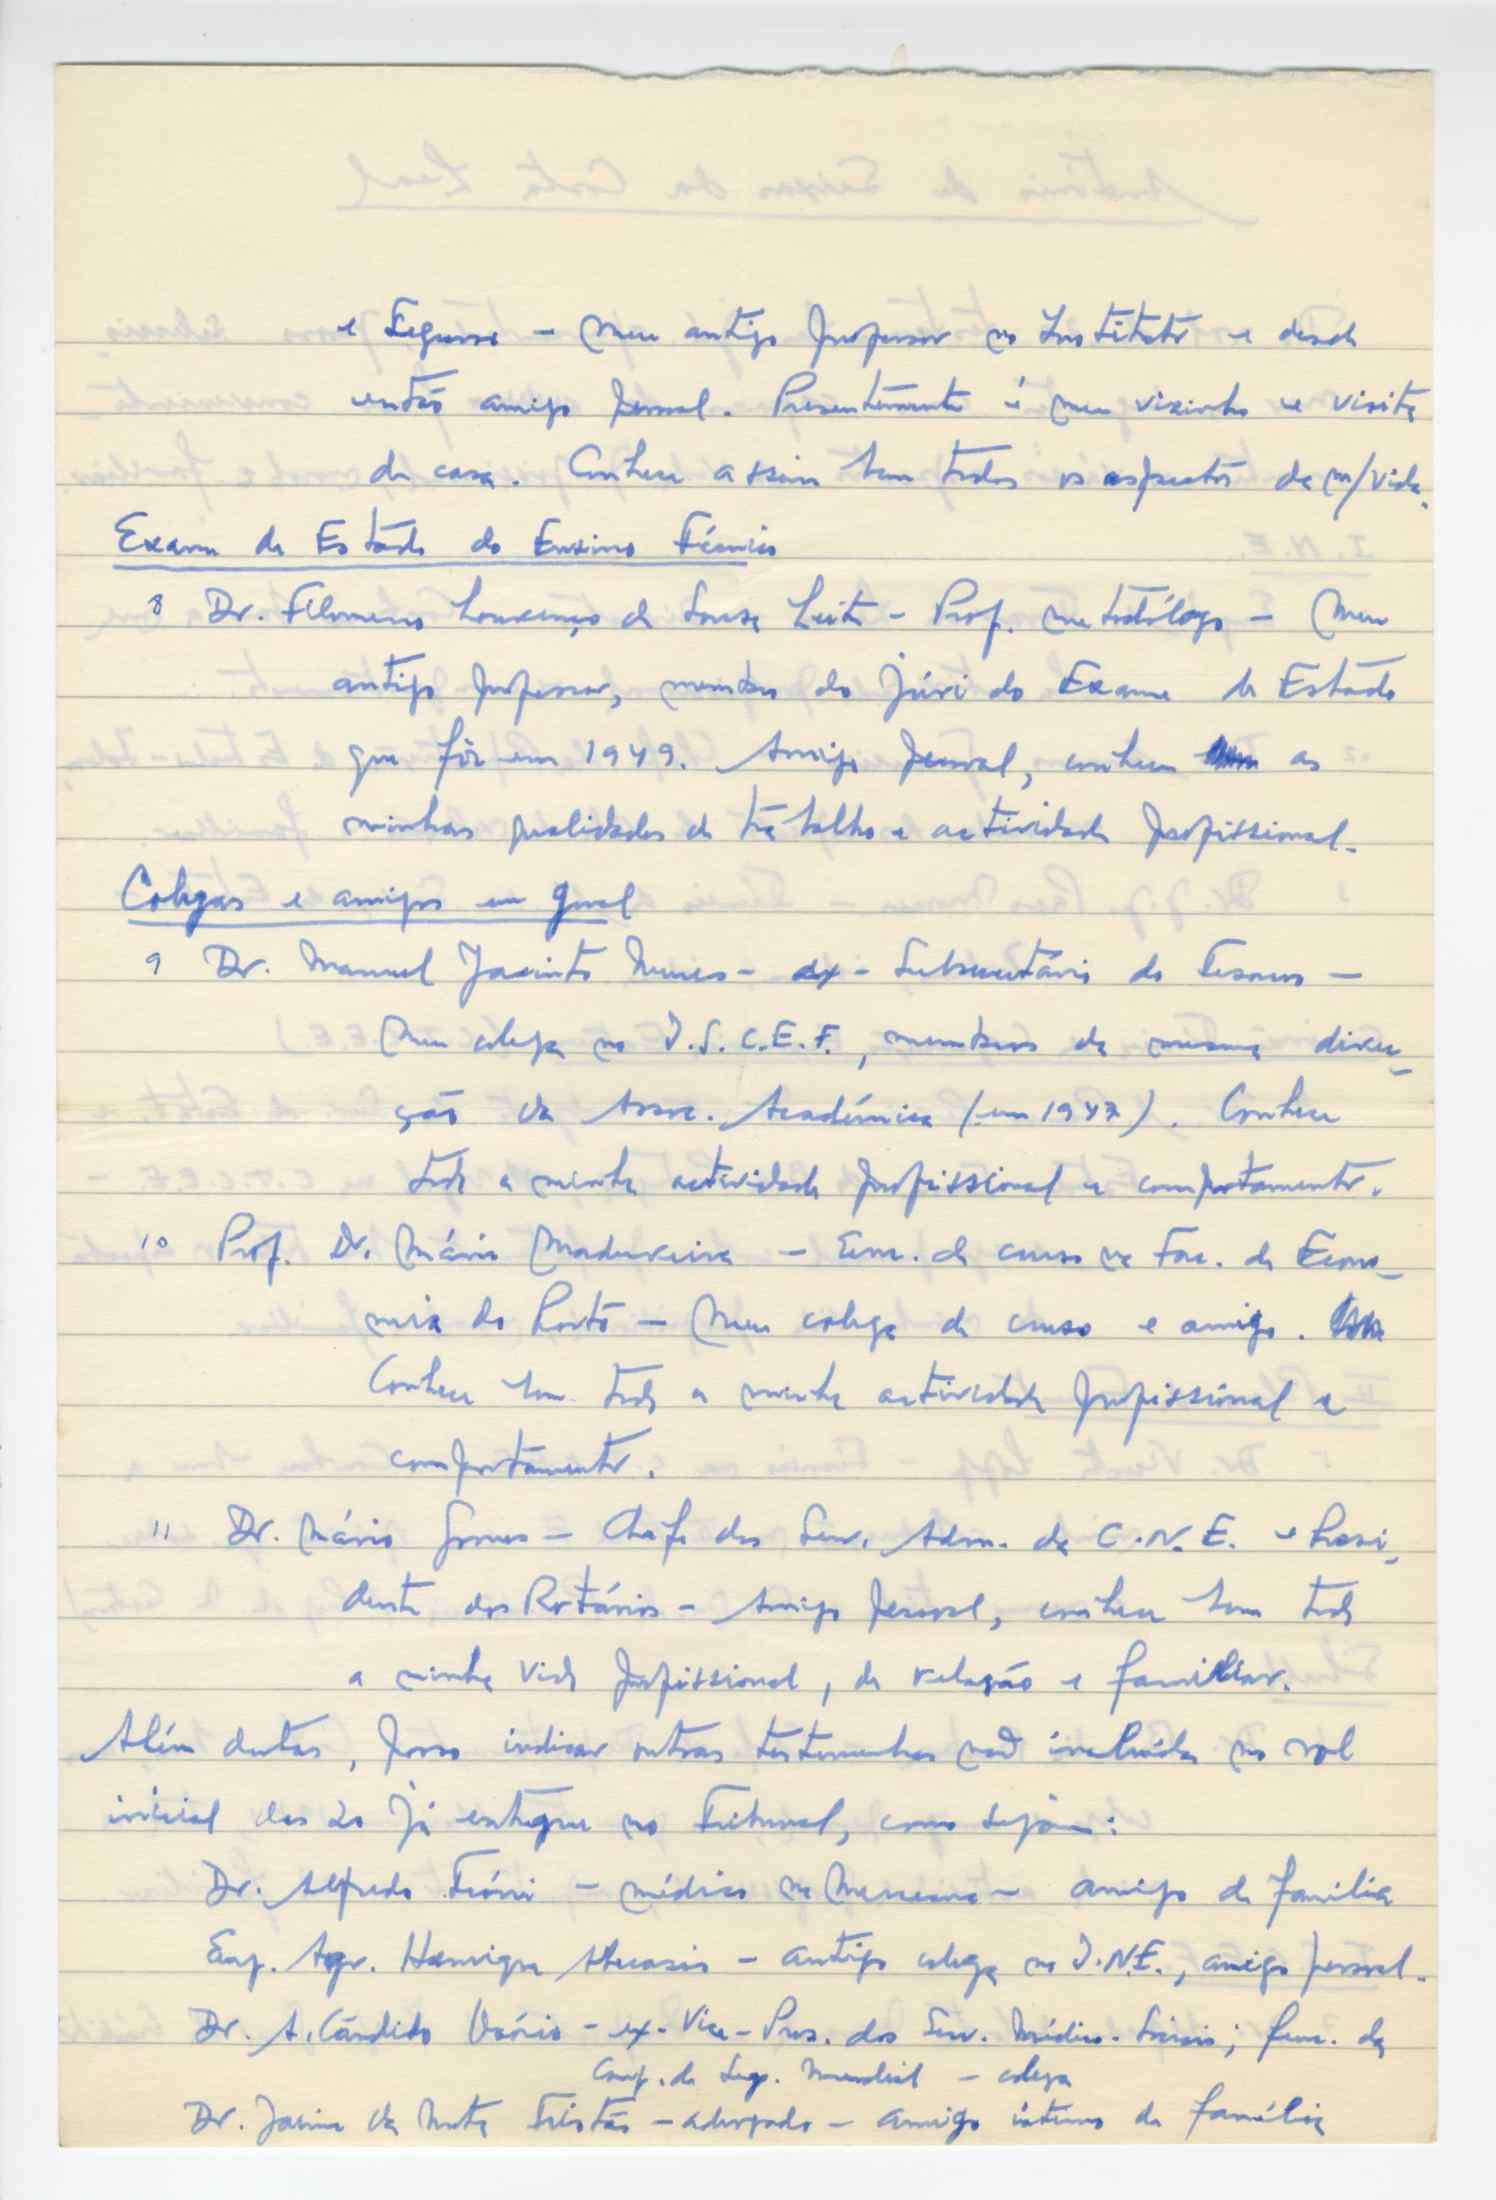 e Seguros – Meu antigo professor no Instituto e desde
então amigo pessoal. Presentemente é meu vizinho e visita
de casa. Conhece assim bem todos os aspectos da m/vida.
Exame de Estado do Ensino Técnico
8 Dr. Filomeno Lourenço de Sousa Leite – Prof. metodólogo – Meu
antigo professor, membro do júri do Exame de Estado
que fiz em 1949. Amigo pessoal, conhece as
minhas qualidades de trabalho e actividade profissional.
Colegas e amigos em geral
9 Dr. Manuel Jacinto Nunes – ex-Subsecretário do Tesouro –
Meu colega no I.S.C.E.F., membro da mesma direc-
ção da Assoc. Académica (em 1947). Conhece
toda a minha actividade profissional e comportamento.
10 Prof. Dr. Mário Madureira – de curso na Fac. de Econo-
mia do Porto – Meu colega de curso e amigo.
Conhece bem toda a minha actividade profissional e
comportamento.
11 Dr. Mário Gomes – Chefe dos Serv. Adm. da C.N.E. e Presi-
dente dos Rotários – Amigo pessoal, conhece bem toda
a minha vida profissional, de relação e familiar.
Além destas, posso indicar outras testemunhas não incluídas no rol
inicial das 20 já entregue no Tribunal, como sejam:
Dr. Alfredo – médico na – amigo da família
Eng. Agr. Henrique – antigo colega no I.N.E., amigo pessoal.
Dr. A. Cândido – ex-Vice-Pres. dos Serv. Médico-Sociais; func. da
Comp. de Seg. Mundial – colega
Dr. Jaime da Mota Tristão – advogado – amigo íntimo da família